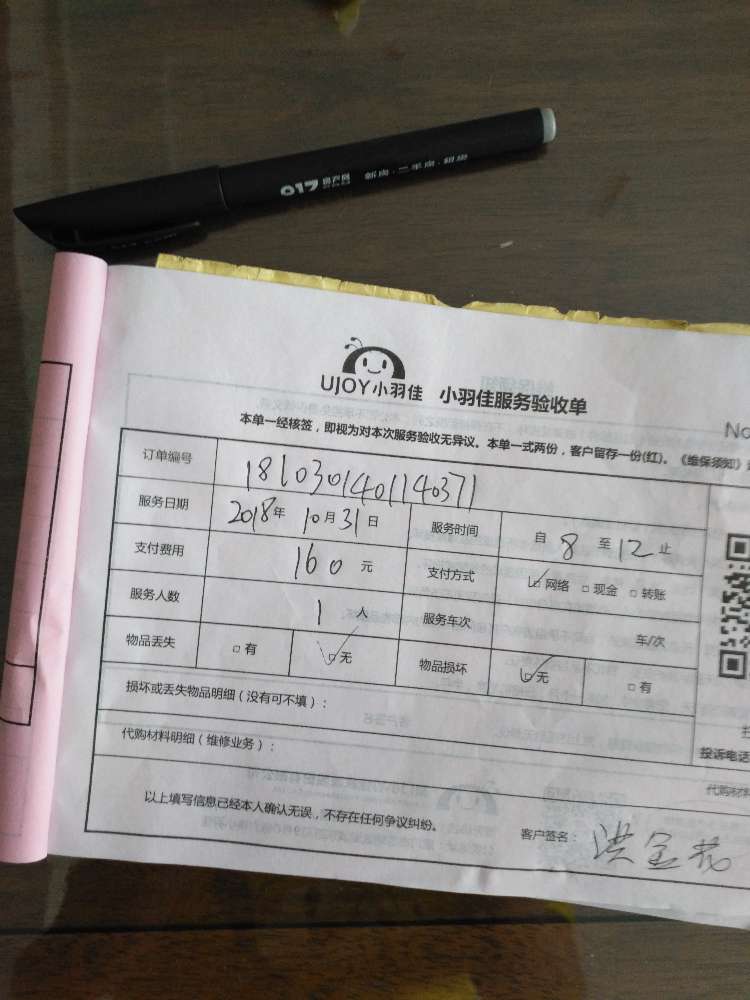 917 房产网 新房·二手房·租房
UJOY小羽佳 小羽佳服务验收单
No
本单一经核签，即视为对本次服务验收无异议。本单一式两份，客户留存一份(红)。《维保须知》
订单编号 1810301401140371
服务日期 2018年 10月31日 服务时间 自 8 至 12 止
支付费用 160 元 支付方式 ☑网络 □现金 □转账
服务人数 1 人 服务车次 车/次
物品丢失 □有 ☑无 物品损坏 ☑无 □有
损坏或丢失物品明细（没有可不填）：
投诉电话
代购材料明细（维修业务）：
代购材料
以上填写信息已经本人确认无误，不存在任何争议纠纷。
客户签名： 洪金花